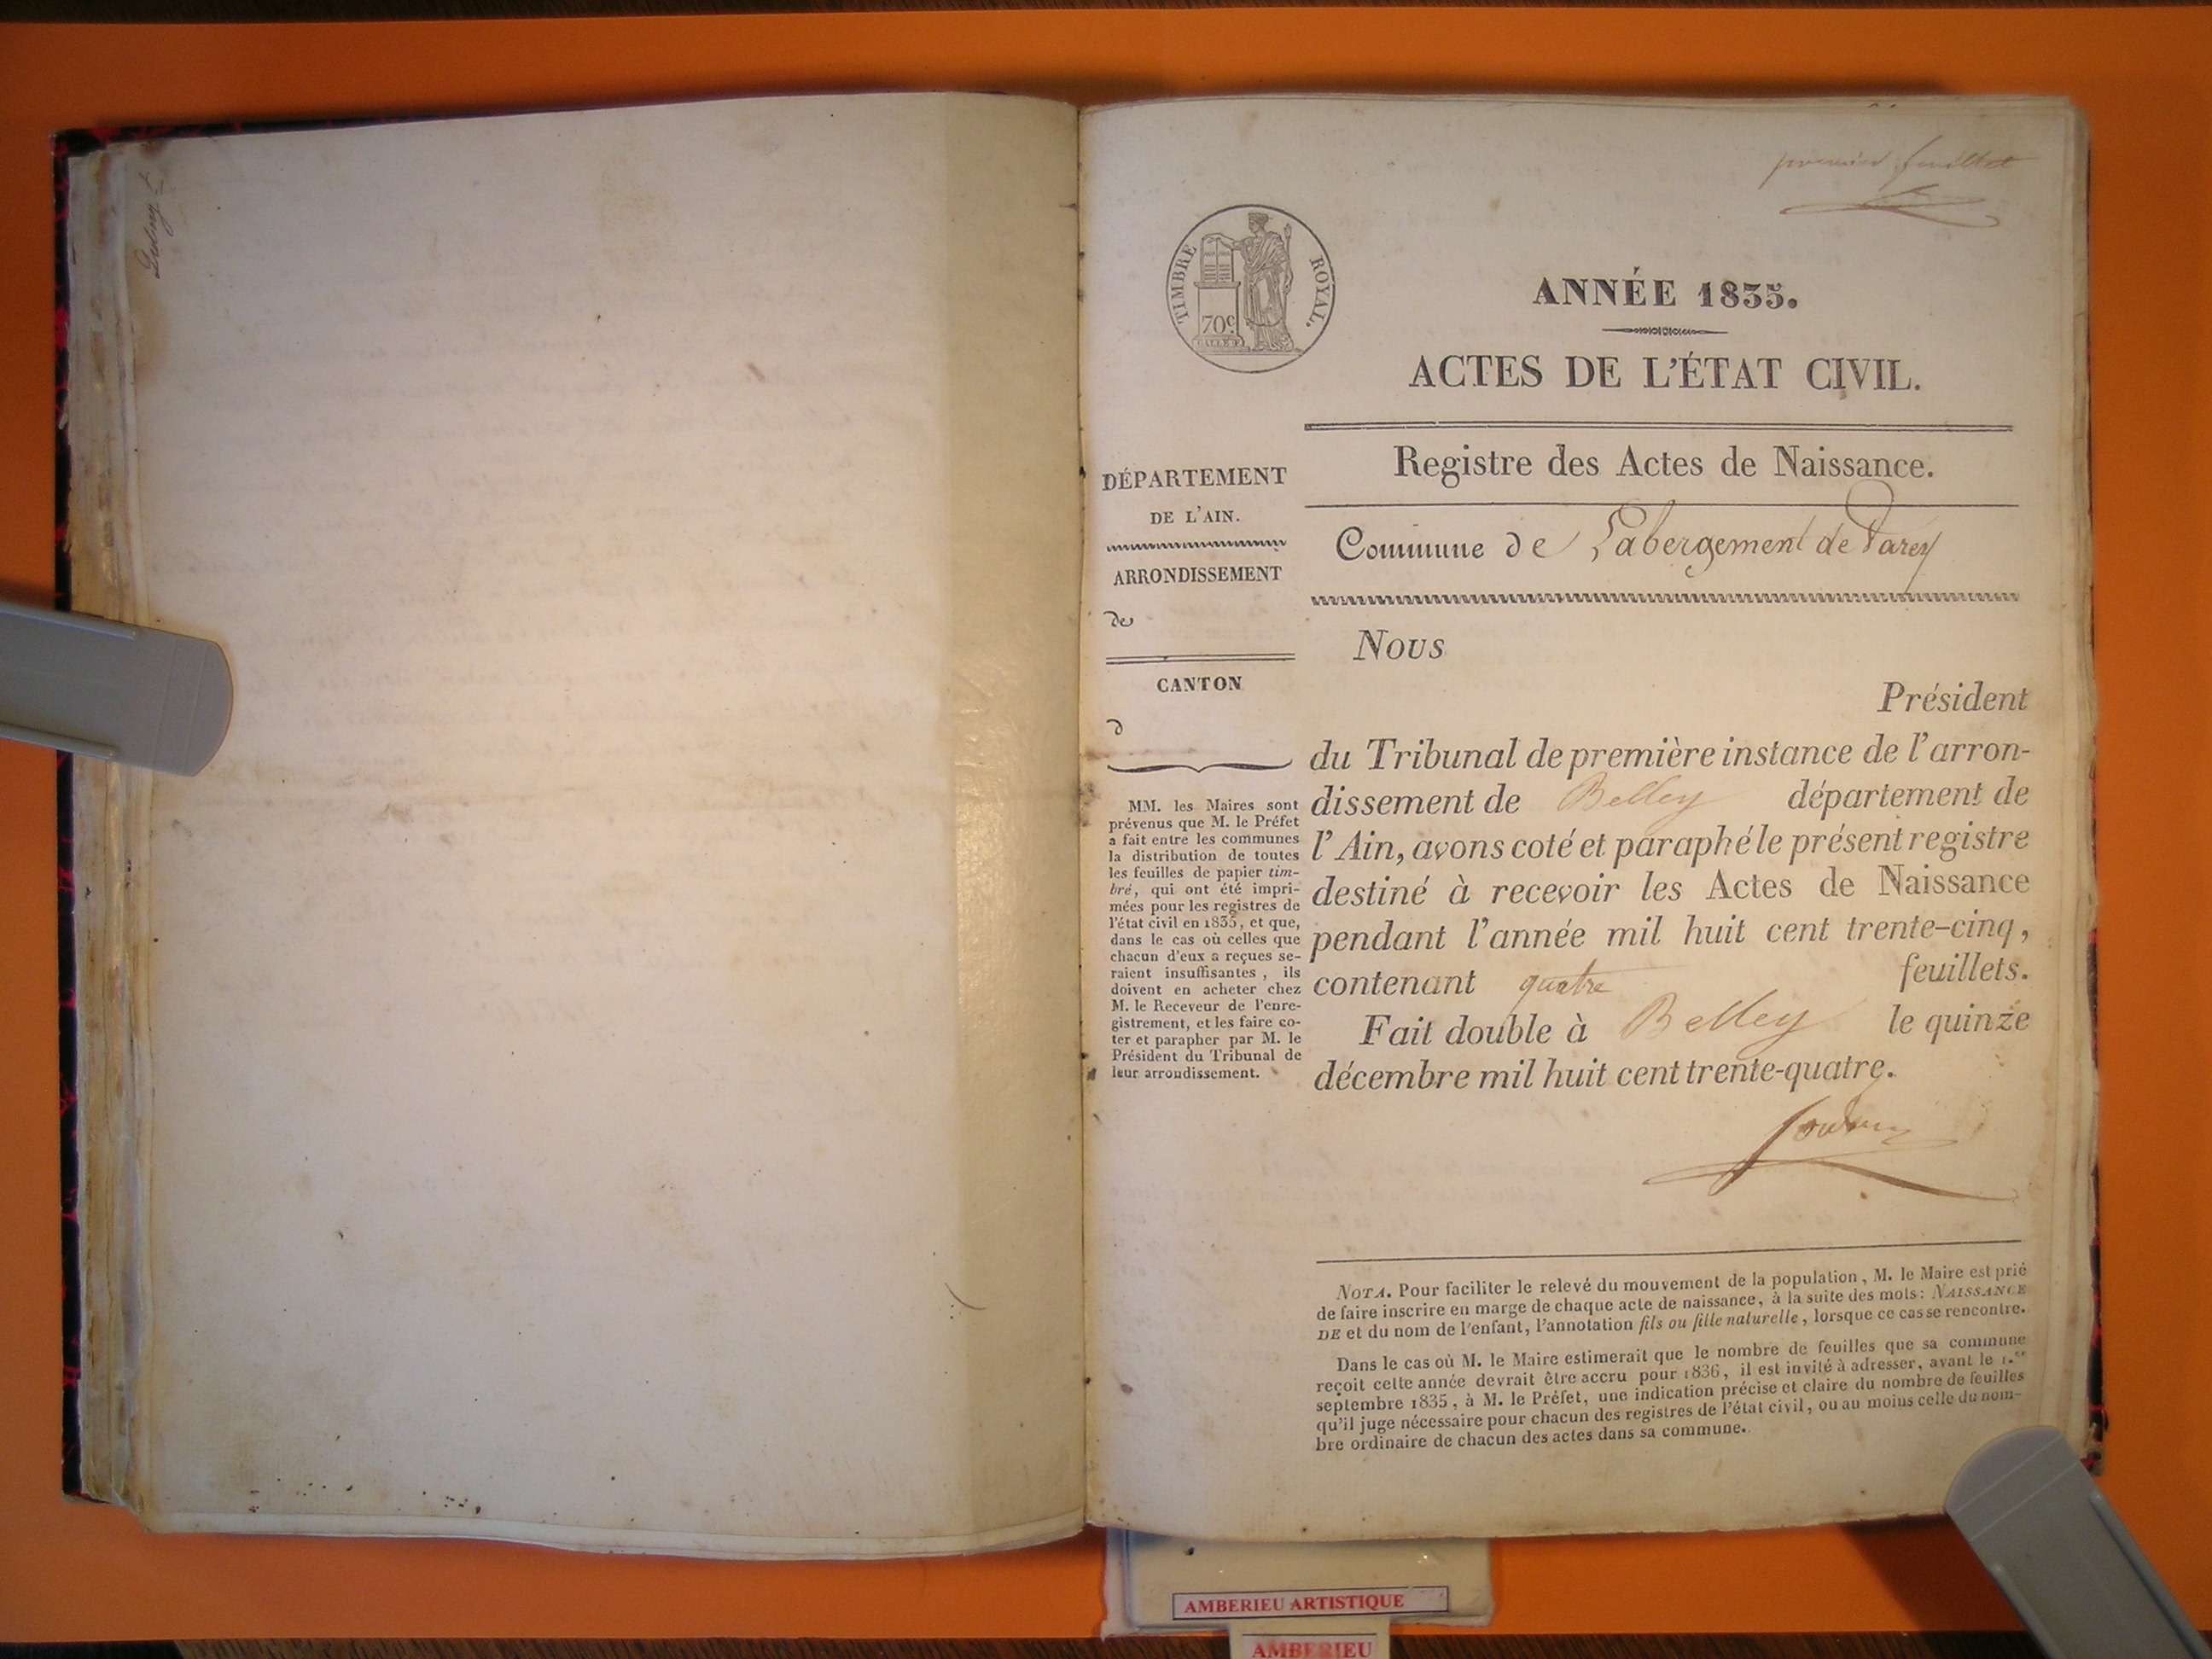 premier feuillet
TIMBRE ROYAL.
70c
ANNÉE 1835.
ACTES DE L'ÉTAT CIVIL.
Registre des Actes de Naissance.
Commune de Labergement de Varey
DÉPARTEMENT
DE L'AIN.
ARRONDISSEMENT
de
CANTON
d
MM. les Maires sont
prévenus que M. le Préfet
a fait entre les communes
la distribution de toutes
les feuilles de papier tim-
bré, qui ont été impri-
mées pour les registres de
l'état civil en 1835, et que,
dans le cas où celles que
chacun d'eux a reçues se-
raient insuffisantes, ils
doivent en acheter chez
M. le Receveur de l'enre-
gistrement, et les faire co-
ter et parapher par M. le
Président du Tribunal de
leur arrondissement.
Nous
Président
du Tribunal de première instance de l'arron-
dissement de Belley département de
l'Ain, avons coté et paraphé le présent registre
destiné à recevoir les Actes de Naissance
pendant l'année mil huit cent trente-cinq,
contenant quatre feuillets.
Fait double à Belley le quinze
décembre mil huit cent trente-quatre.
NOTA. Pour faciliter le relevé du mouvement de la population, M. le Maire est prié
de faire inscrire en marge de chaque acte de naissance, à la suite des mots: NAISSANCE
DE et du nom de l'enfant, l'annotation fils ou fille naturelle, lorsque ce cas se rencontre.
Dans le cas où M. le Maire estimerait que le nombre de feuilles que sa commune
reçoit cette année devrait être accru pour 1836, il est invité à adresser, avant le 1.er
septembre 1835, à M. le Préfet, une indication précise et claire du nombre de feuilles
qu'il juge nécessaire pour chacun des registres de l'état civil, ou au moins celle du nom-
bre ordinaire de chacun des actes dans sa commune.
AMBERIEU ARTISTIQUE
AMBERIEU